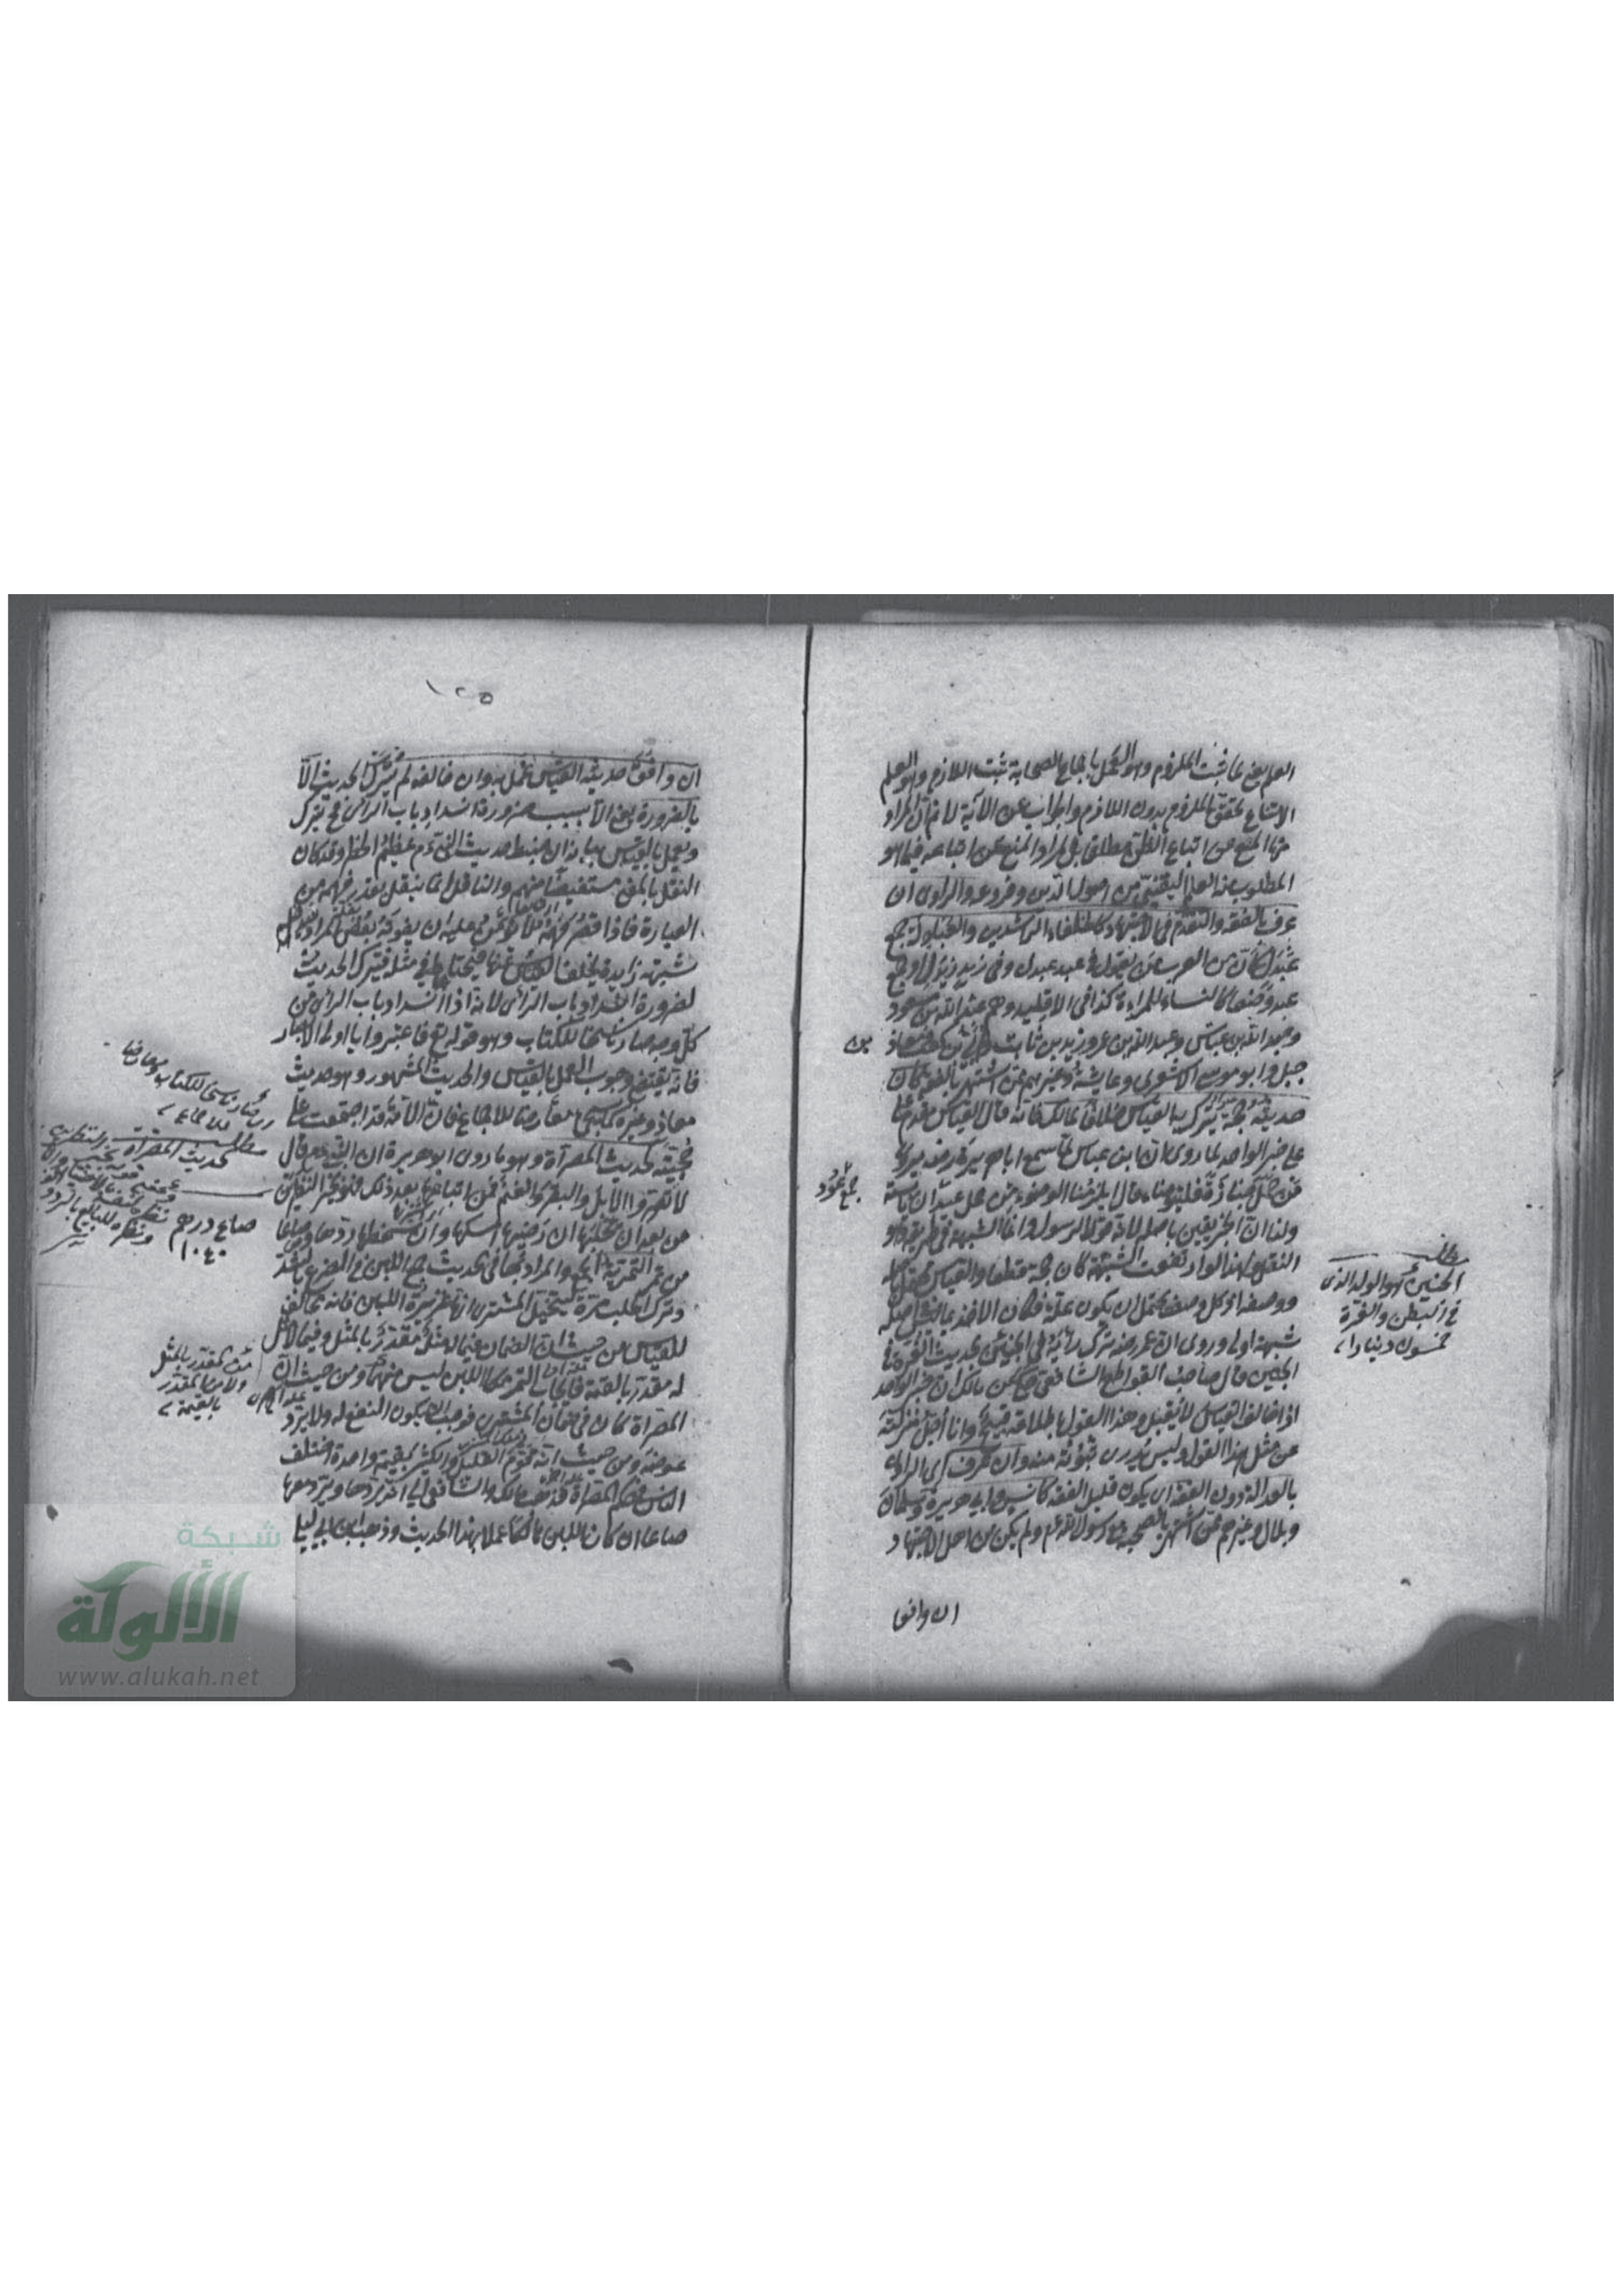 العلم يعني لما ثبت الملزوم وهو العمل باجماع الصحابة ثبت اللازم وهو العلم
لامتناع تحقق الملزوم بدون اللازم والجواب عن الآية لا نم ان المراد
منها المنع من اتباع الظن مطلقا بل المراد المنع عن اتباعه فيما هو
المطلوب منه العلم اليقيني من اصول الدين وفروعه والراوي ان
عرف بالفقه والتقدم في الاجتهاد كالخلفاء الراشدين والعبادلة جمع
عبدل لان من العرب من يقول في عبد عبدل وفي زيد زيدل او جمع
عبد وضعا كالنساء للمراءة كذا في الاقليد وهم عبد الله بن مسعود
وعبد الله بن عباس وعبد الله بن عمر وزيد بن ثابت وابي بن كعب ومعاذ
بن
جبل وابو موسى الاشعري وعايشة وغيرهم ممن اشتهر بالفقه كان
حديثه حجة يترك به القياس خلافا لمالك فانه قال القياس مقدم
على خبر الواحد لما روي ان ابن عباس لما سمع ابا هريرة رضه يروي
من حمل جنازة فليتوضاء قال ايلزمنا الوضوء من حمل عيدان يابسة
جمع عود
ولنا ان الخبر يقين باصله لانه قول الرسول وانما الشبهة في طريقه وهو
النقل ولهذا لو ارتفعت الشبهة كان حجة قطعا والقياس محتمل باصله
ووصفه اذ كل وصف يحتمل ان يكون علة فكان الاخذ بما ليس في اصله
شبهة اولى وروي ان عمر رضه ترك رأيه في الجنين بحديث الغرة في
الجنين قال صاحب القواطع الشافعي حكي عن مالك ان خبر الواحد
اذا خالف القياس لا يقبل وهذا القول باطلاقه قبيح وانا اجل منزلته
عن مثل هذا القول وليس يدرى ثبوته منه وان عرف اي الراوي
بالعدالة دون الفقه اي يكون قليل الفقه كانس وابي هريرة وسلمان
وبلال وغيرهم ممن اشتهر بالصحبة مع رسول الله عم ولم يكن من اهل الاجتهاد
ان وافق
مطلب
الجنين هو الولد الذي
في البطن والغرة
خمسون دينارا
١٢٥
ان وافق حديثه القياس عمل به وان خالفه لم يترك الحديث الا
بالضرورة يعني الا بسبب ضرورة انسداد باب الرأي فح يترك
ويعمل بالقياس بيانه ان ضبط حديث النبي عم عظيم الخطر وقد كان
النقل بالمعنى مستفيضا منهم والناقل انما ينقل بقدر فهمه من
العبارة فاذا قصر فهمه لا يؤمن عليه ان يفوته بعض المراد
شبهة زايدة يخلو القياس عنها فيحتاط في مثله فيترك الحديث
لضرورة انسداد باب الرأي لانه اذا انسد باب الرأي من
كل وجه صار ناسخا للكتاب وهو قوله تع فاعتبروا يا اولي الابصار
فانه يقتضي وجوب العمل بالقياس والحديث المشهور وهو حديث
معاذ وغيره معارضا للاجماع فان الامة قد اجتمعت على
حجيته كحديث المصراة وهو ما روى ابو هريرة ان النبي عم قال
لا تصروا الابل والبقر والغنم فمن ابتاعها بعد ذلك فهو بخير النظرين
من بعد ان يحلبها ان رضيها امسكها وان سخطها ردها وصاعا
من تمر التصرية الجمع والمراد بها في الحديث جمع اللبن في الضرع بالشد
وترك الحلب مرة ليتخيل المشتري انها غزيرة اللبن فانه مخالف
للقياس من حيث ان الضمان فيما له مثل مقدر بالمثل وفيما لا مثل
له مقدر بالقيمة فايجاب التمر مكان اللبن ليس منهما ومن حيث ان
المصراة كان في ضمان المشتري فوجب ان يكون النفع له ولا يرد
عوضه ومن حيث انه قوم القليل والكثير بقيمة واحدة اختلف
الناس في حكم المصراة فذهب مالك والشافعي الى انه يردها ويرد معها
صاعا ان كان اللبن هالكا عملا بهذا الحديث وذهب ابن ابي ليلى
مطلب
حديث المصراة
صاع درهم
١٠٤٠
بالقيمة
شبكة
الألوكة
www.alukah.net